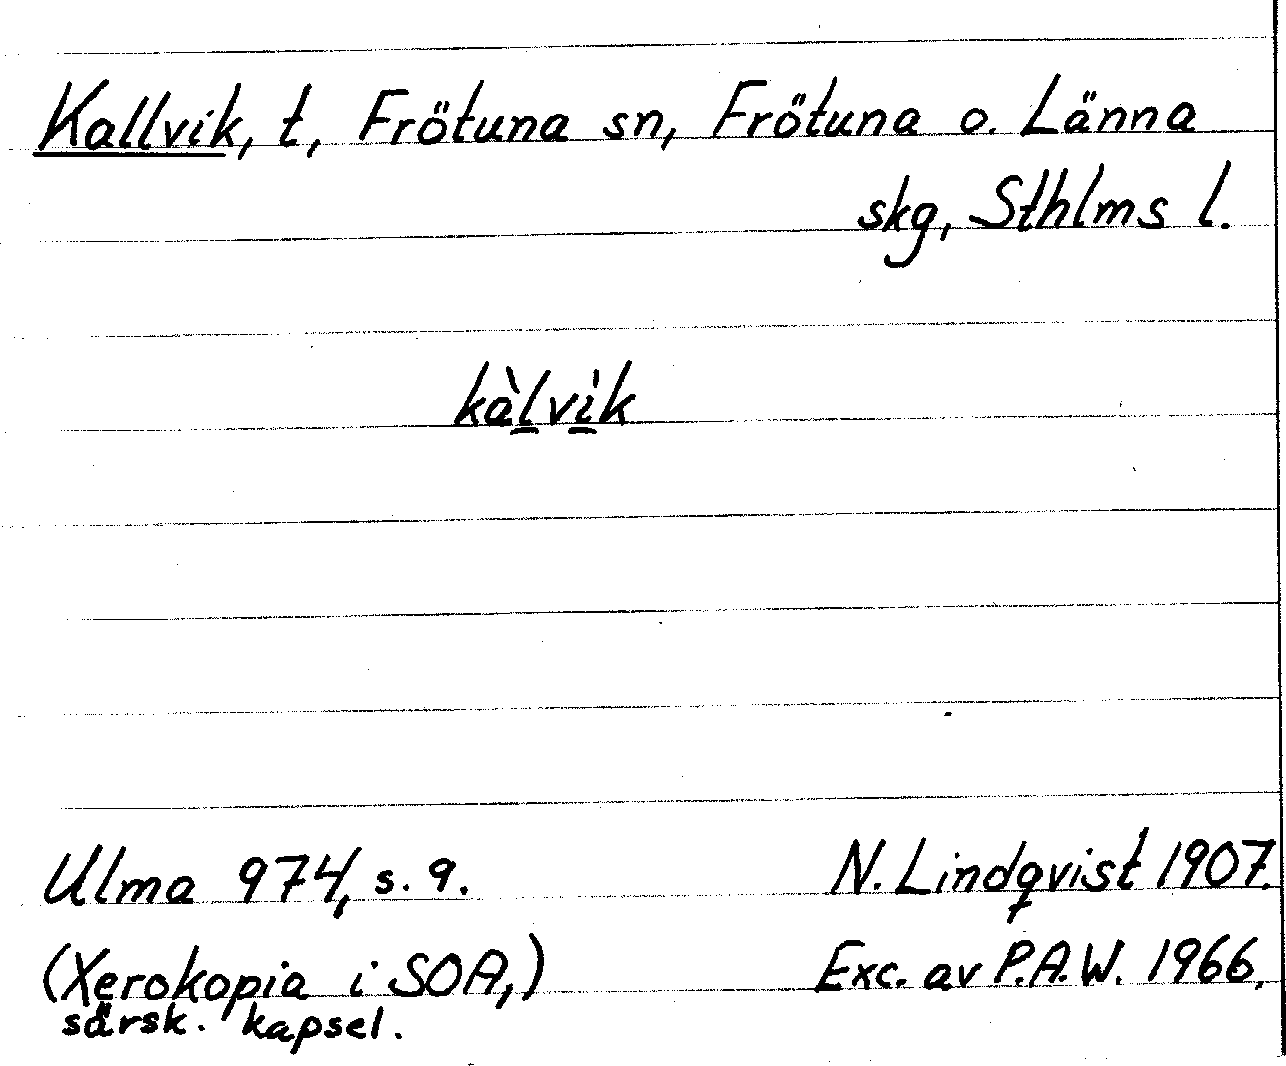 Kallvik, t, Frötuna sn, Frötuna o. Länna
skg, Sthlms l.
kàl̲vi̲̍k
Ulma 974, s. 9.
N. Lindqvist 1907.
(Xerokopia i SOA,)
Exc. av P.A.W. 1966.
särsk. kapsel.